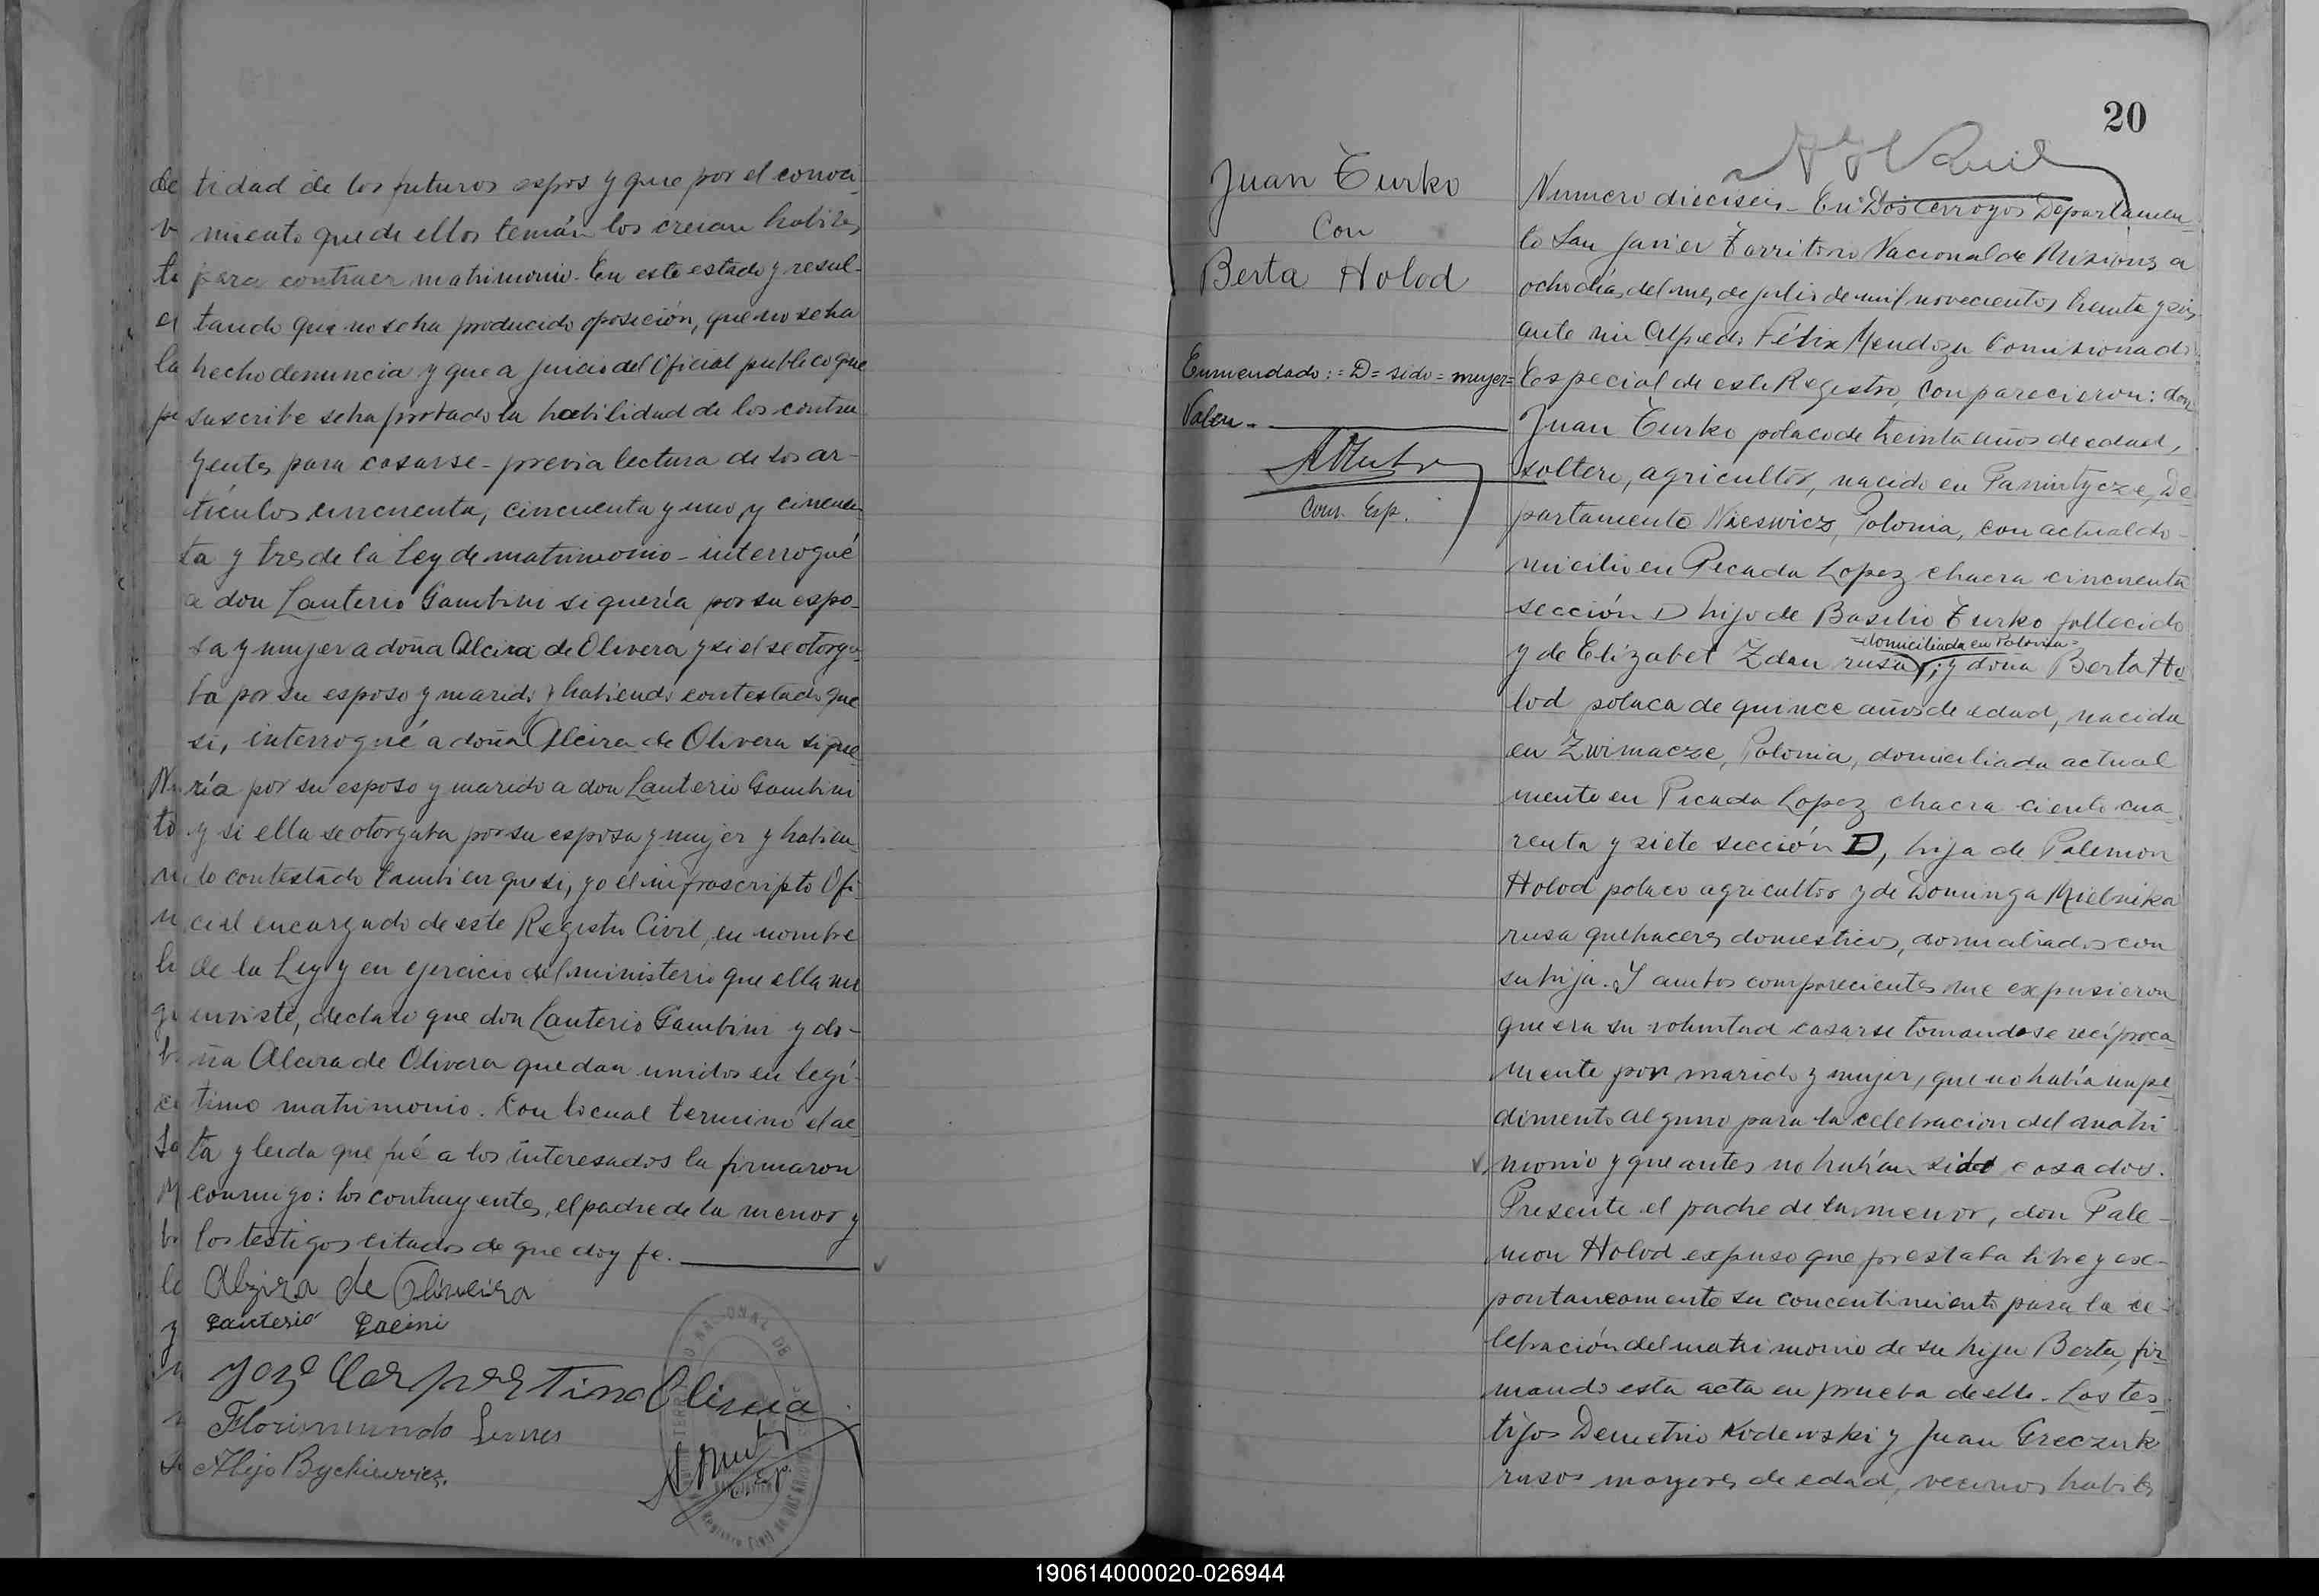 tidad de los futuros espos y que por el conoci-
miento que de ellos tenían los creian habiles
para contraer matrimonio. En este estado y resul-
tando que no se ha producido oposición, que no se ha
hecho denuncia y que a juicio del Oficial publico que
suscribe se ha probado la habilidad de los contra
yentes para casarse - previa lectura de los ar-
tículos cincuenta, cincuenta y uno, y cincuen-
ta y tres de la Ley de matrimonio - interrogué
a don Lauterio Gambini si quería por su espo-
sa y mujer a doña Alcira de Olivera y si el se otorga-
ba por su esposo y marido y habiendo contestado que
si, interrogué a doña Alcira de Olivera si que
ría por su esposo y marido a don Lauterio Gambini
y si ella se otorgaba por su esposa y mujer y habien-
do contestado tambien que si, yo el infrascripto Ofi-
cial encargado de este Registro Civil, en nombre
de la Ley y en ejercicio del ministerio que ella me
inviste, declaro que don Lauterio Gambini y do-
ña Alcira de Olivera quedan unidos en legí-
timo matrimonio. Con lo cual terminó el ac-
ta y leida que fué a los interesados la firmaron
conmigo: los contrayentes, el padre de la menor y
los testigos citados de que doy fe.
Alzira de Oliveira
Lauterio
Florimundo
Alijo Bychiewicz.
20
Juan Turko
Con
Berta Holod
Enmendado: = D = sido = mujer =
Valen.
Com. Esp.
Numero dieciseis - En Dos Arroyos Departamen-
to San Javier Territorio Nacional de Misiones a
ocho días del mes de julio de mil novecientos treinta y seis
ante mi Alfredo Félix Mendoza Comisionado
Especial de este Registro, comparecieron: don
Juan Turko polaco de treinta años de edad,
soltero, agricultor, nacido en De-
partamento Nieswicz, Polonia, con actual do-
micilio en Picada Lopez chacra cincuenta
sección D hijo de Basilio Turko fallecido
=domiciliada en Polonia=
y de Elizabet Zdan rusa; y doña Berta Ho-
lod polaca de quince años de edad, nacida
en Zwimacze, Polonia, domiciliada actual
mente en Picada Lopez chacra ciento cua-
renta y siete sección D, hija de Palemon
Holod polaco agricultor y de Dominga Mielnika
rusa quehaceres domesticos, domiciliados con
su hija. Y ambos comparecientes me expusieron
que era su voluntad casarse tomandose recíproca-
mente por marido y mujer, que no había impe-
dimento alguno para la celebracion del matri
monio y que antes no habían sido casados.
Presente el padre de la menor, don Pale-
mon Holod expuso que prestaba libre y es-
pontaneamente su concentimiento para la ce-
lebración del matrimonio de su hija Berta, fir-
mando esta acta en prueba de ello. Los tes-
tigos Demetrio Kodewski y Juan Greczuk
rusos mayores de edad, vecinos habiles